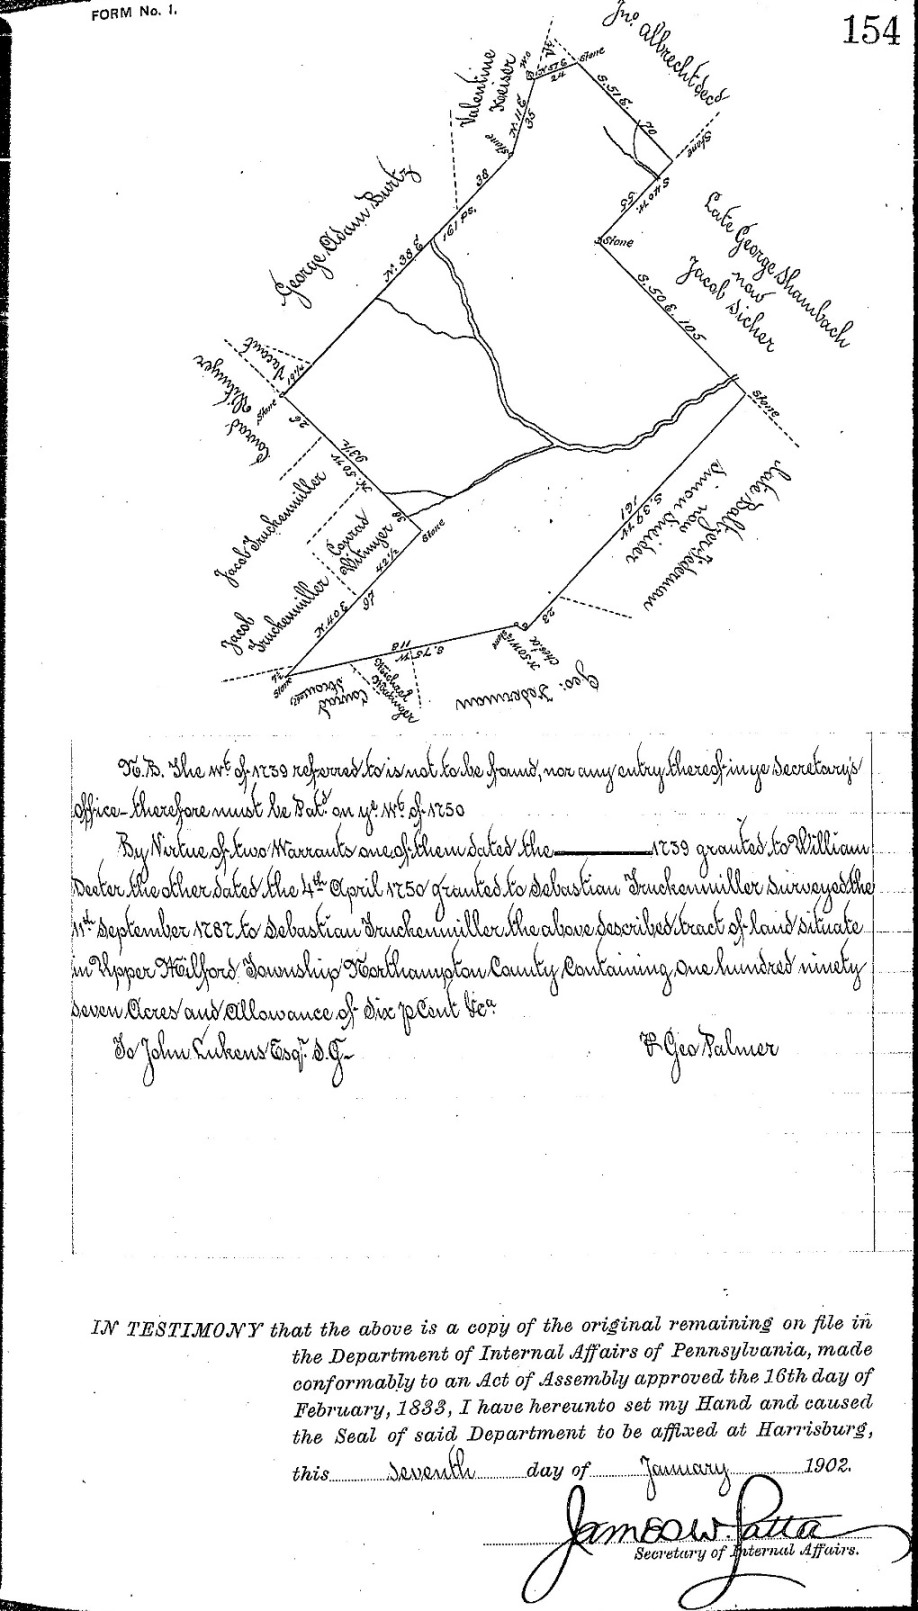 FORM No. 1.
154
Jno Albrecht decd
Valentine
Keiser
Stone
N 57 E
24
S. 51 E.
70
Stone
N. 11 E
35
Stone
S 40 W
55
Stone
38
161 ps.
N. 38 E
George Adam Burtz
Late George Shambach
now
Jacob Dicher
S. 50 E. 105
Stone
Vacant
19 1/2
Stone
Conrad
Witmyer
26
N. 50 W
93 1/2
38
Stone
Jacob Truckenmiller
Conrad
Witmyer
42 1/2
97
N. 40 E
Jacob
Truckenmiller
Late Baltzer Federman
now
Simon Sneider
S. 39 W
161
23
N 50 W
Ches. O.
S. 75 W
118
Stone
Conrad
Geo: Federman
N. B. The Wt of 1739 referred to is not to be found, nor any entry thereof in ye Secretary's
office – therefore must be Patd on ye Wt of 1750
By Virtue of two Warrants one of them dated the 1739 granted to William
Deeter the other dated the 4th April 1750 granted to Sebastian Truckenmiller surveyed the
11th September 1787 to Sebastian Truckenmiller the above described tract of land situate
in Upper Milford Township Northampton County Containing one hundred ninety
seven Acres and Allowance of Six p Cent &ca
To John Lukens Esqr. S. G–
P Geo Palmer
IN TESTIMONY that the above is a copy of the original remaining on file in
the Department of Internal Affairs of Pennsylvania, made
conformably to an Act of Assembly approved the 16th day of
February, 1833, I have hereunto set my Hand and caused
the Seal of said Department to be affixed at Harrisburg,
this seventh day of January 1902.
James W. Latta
Secretary of Internal Affairs.